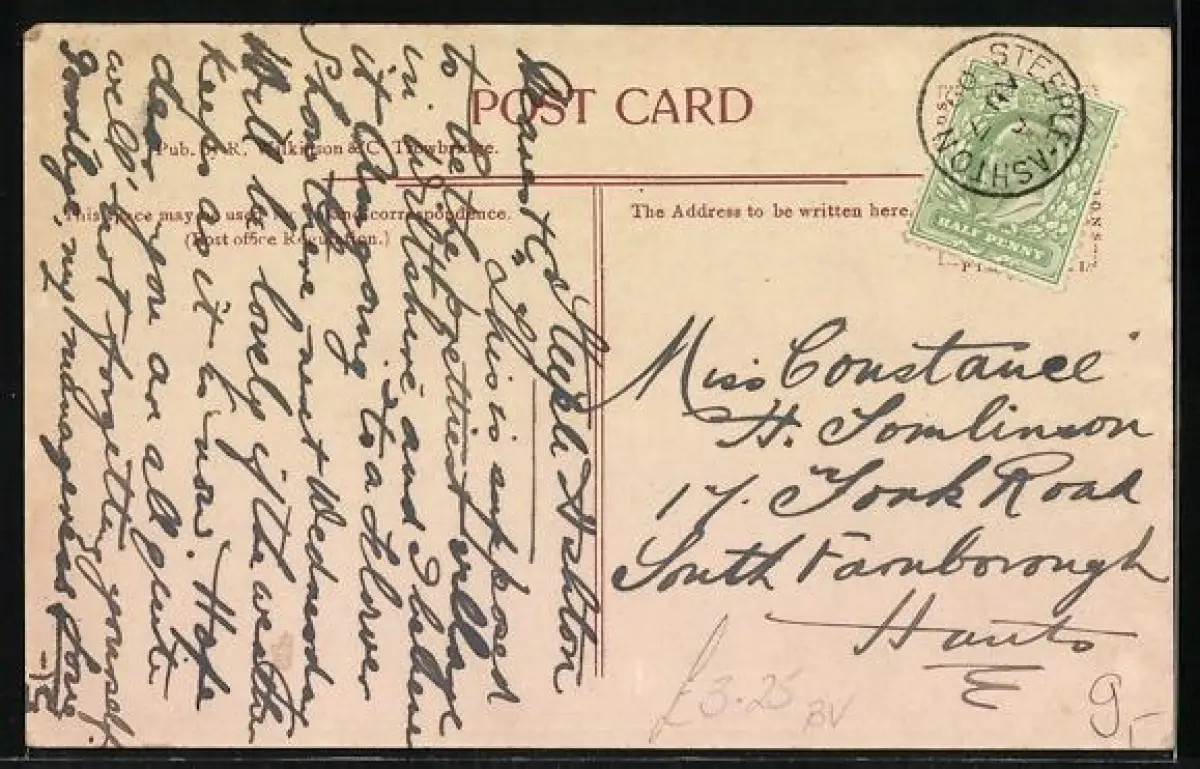 POST CARD
Pub. by R. Wilkinson & Co. Trowbridge.
This space may be used for correspondence.
(Post office Regulation.)
The Address to be written here.
STEEPLE-ASHTON
HALF PENNY
Miss Constance
H. Tomlinson
17. York Road
South Farnborough
Hants
E
£3.25
BV
9,-
Steeple Ashton
This is supposed
to be the prettiest village
in Wiltshire and I believe
it. Am going to a Flower
Show there next Wednesday
Will be lovely if the weather
keeps as it is now. Hope
dear you are all quite
well & not forgetting yourself.
Love
15